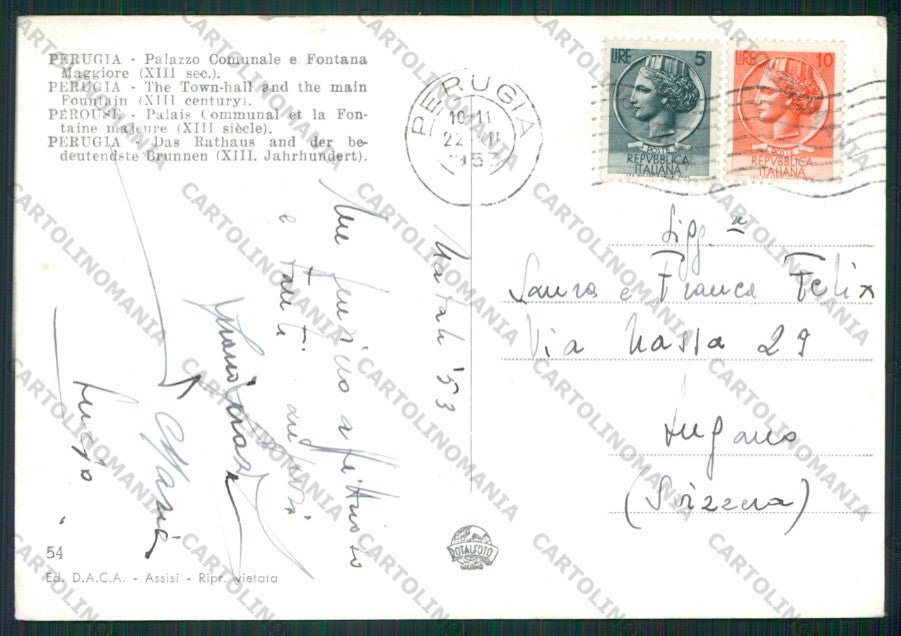 PERUGIA - Palazzo Comunale e Fontana
Maggiore (XIII sec.).
PERUGIA - The Town-hall and the main
Fountain (XIII century).
PEROUSE - Palais Communal et la Fon-
taine majeure (XIII siècle).
PERUGIA - Das Rathaus und der be-
deutendste Brunnen (XIII. Jahrhundert).
PERUGIA
10-11
22
LIRE 5
POSTE
REPVBBLICA
ITALIANA
LIRE 10
POSTE
REPVBBLICA
ITALIANA
Natale '53
Un pensiero affettuoso
e tanti auguri
Maria
Sigg.
Laura e Franca Felix
Via Massa 29
Lugano
(Svizzera)
54
Ed. D.A.C.A. - Assisi - Ripr. vietata
ROTALFOTO
MILANO
CARTOLINOMANIA